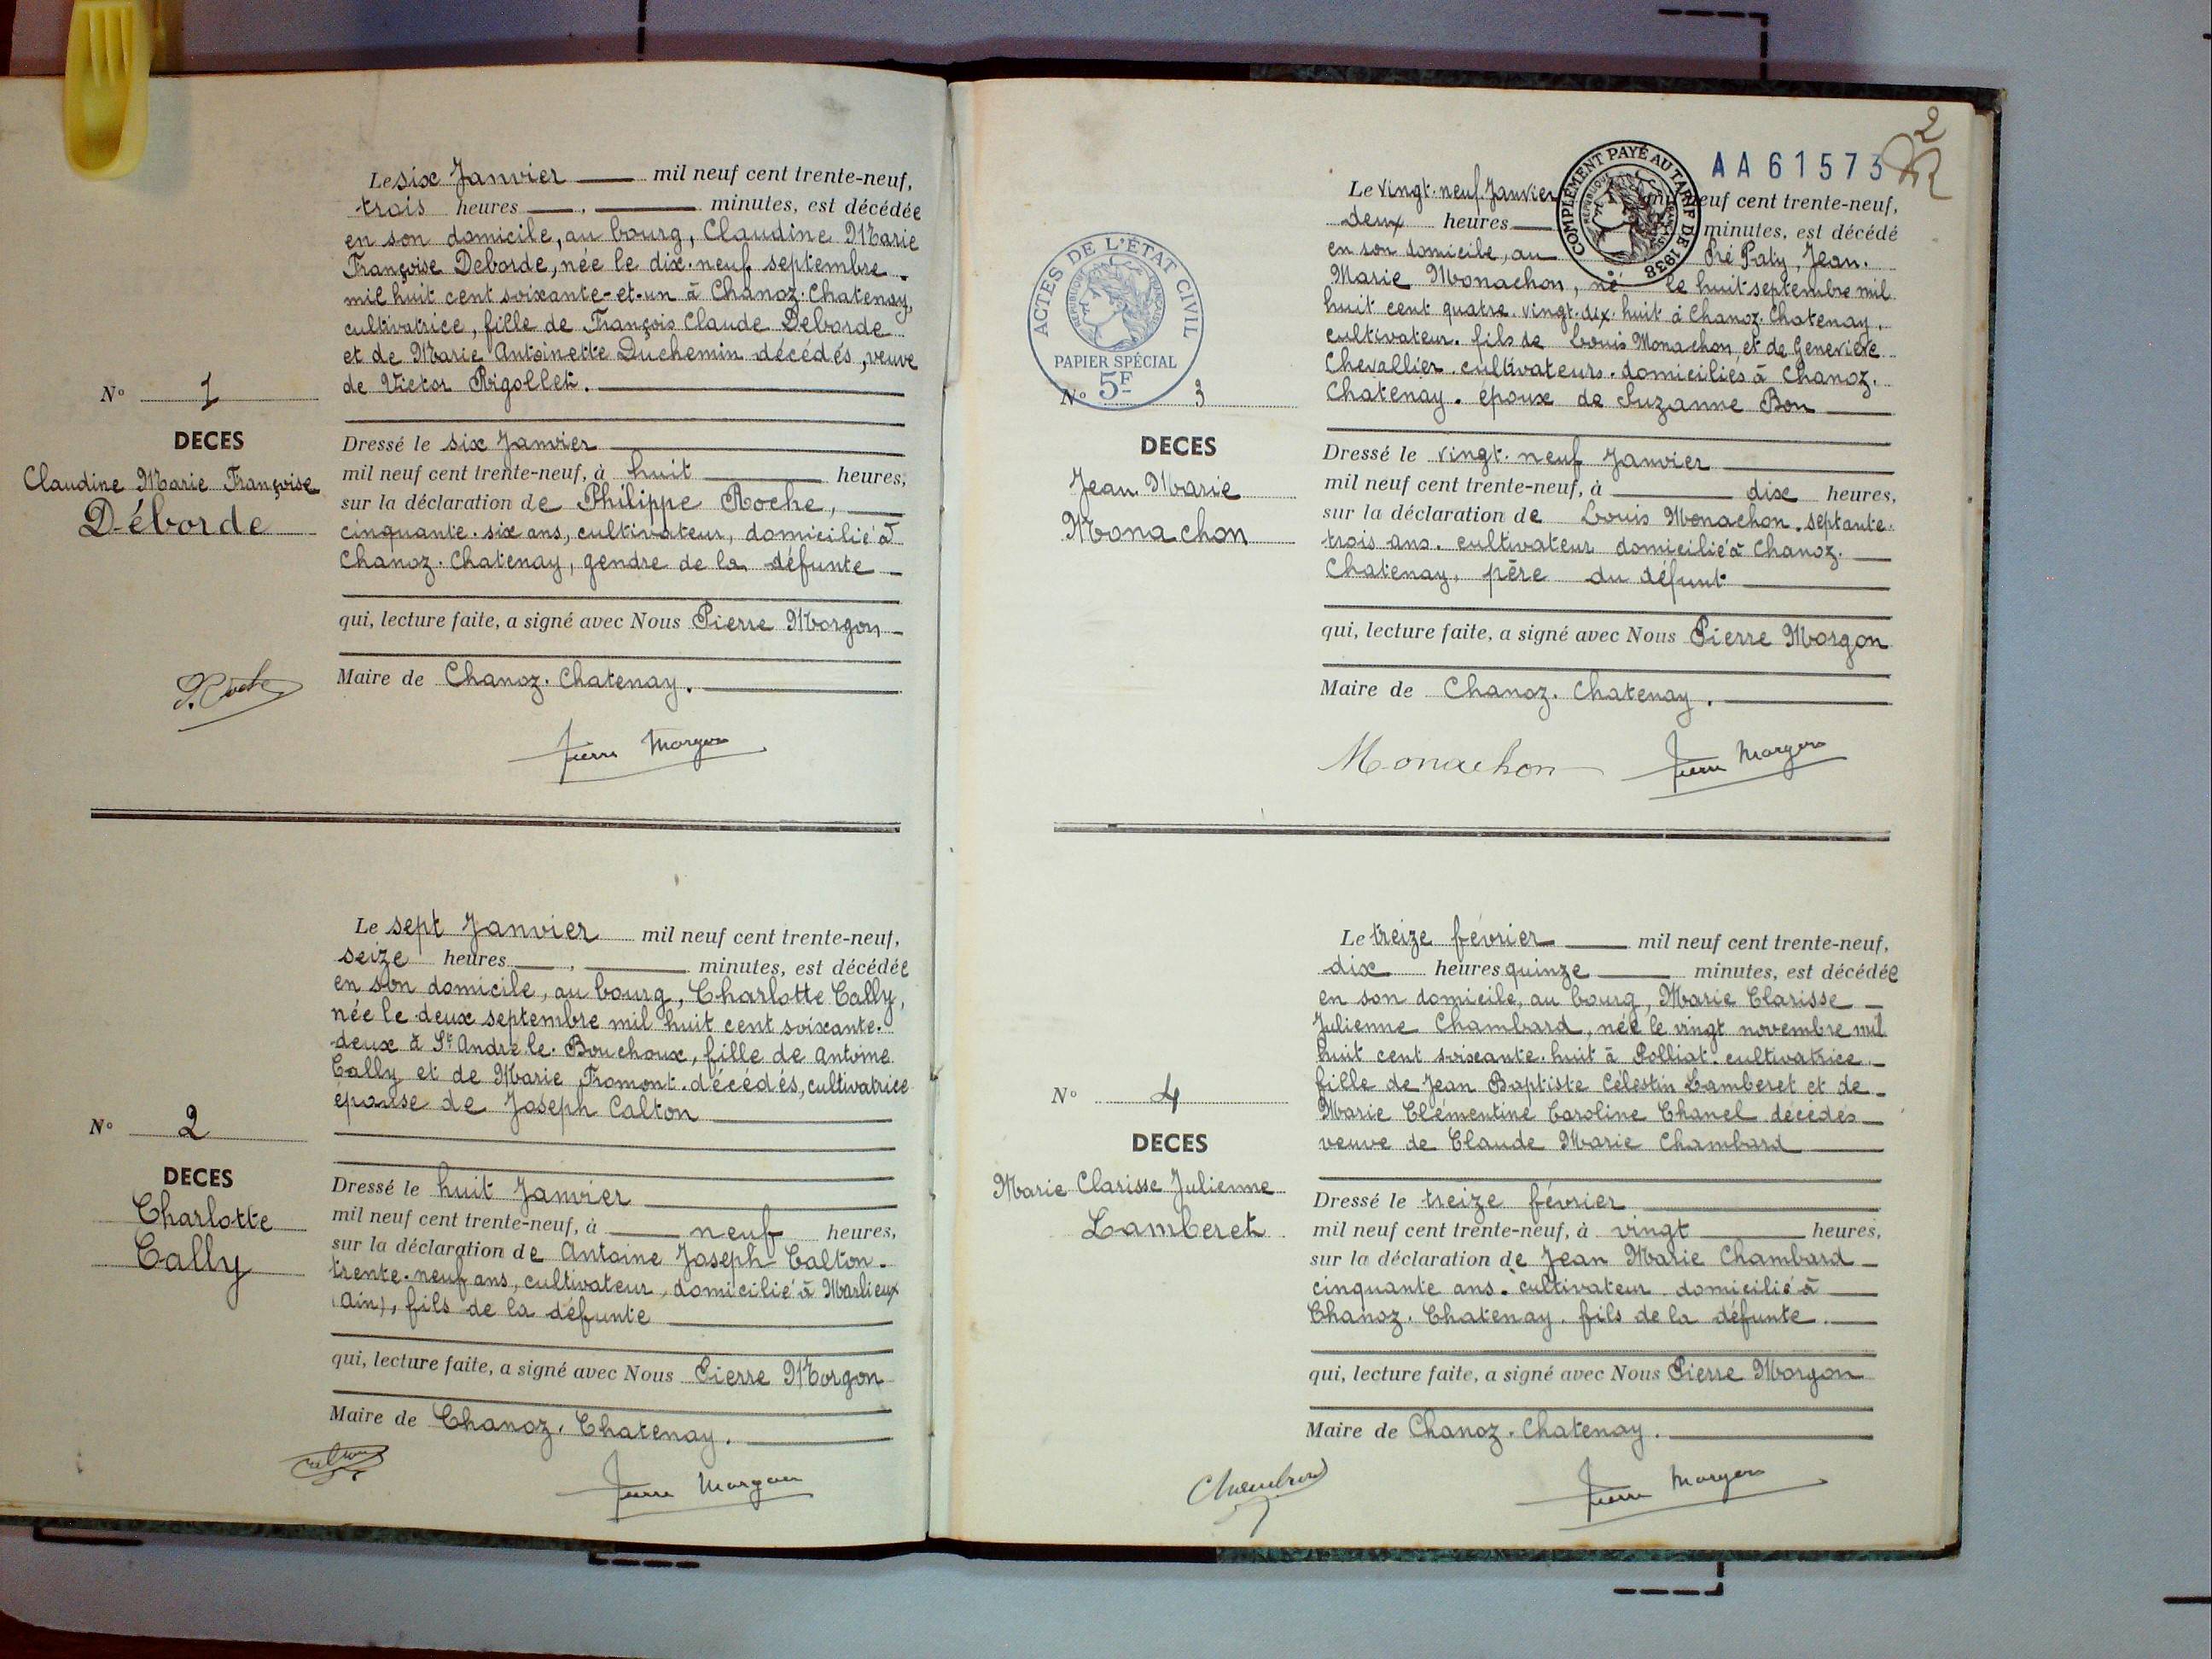 Le six Janvier mil neuf cent trente-neuf,
trois heures , minutes, est décédée
en son domicile, au bourg, Claudine Marie
Françoise Deborde, née le dix-neuf septembre
mil huit cent soixante-et-un à Chanoz-Chatenay,
cultivatrice, fille de François Claude Deborde
et de Marie Antoinette Duchemin décédés, veuve
de Victor Rigollet.
N° 1
DECES
Claudine Marie Françoise
Déborde
Dressé le six Janvier
mil neuf cent trente-neuf, à huit heures,
sur la déclaration de Philippe Roche,
cinquante-six ans, cultivateur, domicilié à
Chanoz-Chatenay, gendre de la défunte
qui, lecture faite, a signé avec Nous Pierre Morgon
Maire de Chanoz-Chatenay.
P. Roche
Pierre Morgon
Le sept Janvier mil neuf cent trente-neuf,
seize heures , minutes, est décédée
en son domicile, au bourg, Charlotte Cally,
née le deux septembre mil huit cent soixante-
deux à St André le-Bouchoux, fille de Antoine
Cally et de Marie Fromont décédés, cultivatrice
épouse de Joseph Calton
N° 2
DECES
Charlotte
Cally
Dressé le huit Janvier
mil neuf cent trente-neuf, à neuf heures,
sur la déclaration de Antoine Joseph Calton
trente-neuf ans, cultivateur, domicilié à Marlieux
(Ain), fils de la défunte
qui, lecture faite, a signé avec Nous Pierre Morgon
Maire de Chanoz-Chatenay.
Calton
Pierre Morgon
2
AA 61573
COMPLÉMENT PAYÉ AU TARIF DE 1938
RÉPUBLIQUE FRANÇAISE
ACTES DE L'ÉTAT CIVIL
RÉPUBLIQUE FRANÇAISE
PAPIER SPÉCIAL
5F
Le vingt-neuf Janvier mil neuf cent trente-neuf,
deux heures minutes, est décédé
en son domicile, au Pré Paty, Jean-
Marie Monachon, né le huit septembre mil
huit cent quatre-vingt-dix-huit à Chanoz-Chatenay,
cultivateur, fils de Louis Monachon, et de Geneviève
Chevallier, cultivateurs, domiciliés à Chanoz-
Chatenay. époux de Suzanne Bon
N° 3
DECES
Jean Marie
Monachon
Dressé le vingt-neuf Janvier
mil neuf cent trente-neuf, à dix heures,
sur la déclaration de Louis Monachon, septante-
trois ans, cultivateur domicilié à Chanoz-
Chatenay, père du défunt
qui, lecture faite, a signé avec Nous Pierre Morgon
Maire de Chanoz-Chatenay.
Monachon Pierre Morgon
Le treize février mil neuf cent trente-neuf,
dix heures quinze minutes, est décédée
en son domicile, au bourg, Marie Clarisse
Julienne Chambard, née le vingt novembre mil
huit cent soixante-huit à Polliat, cultivatrice
fille de Jean Baptiste Célestin Lamberet et de
Marie Clémentine Caroline Chanel décédés
veuve de Claude Marie Chambard
N° 4
DECES
Marie Clarisse Julienne
Lamberet
Dressé le treize février
mil neuf cent trente-neuf, à vingt heures,
sur la déclaration de Jean Marie Chambard
cinquante ans, cultivateur domicilié à
Chanoz-Chatenay, fils de la défunte.
qui, lecture faite, a signé avec Nous Pierre Morgon
Maire de Chanoz-Chatenay.
Chambard
Pierre Morgon